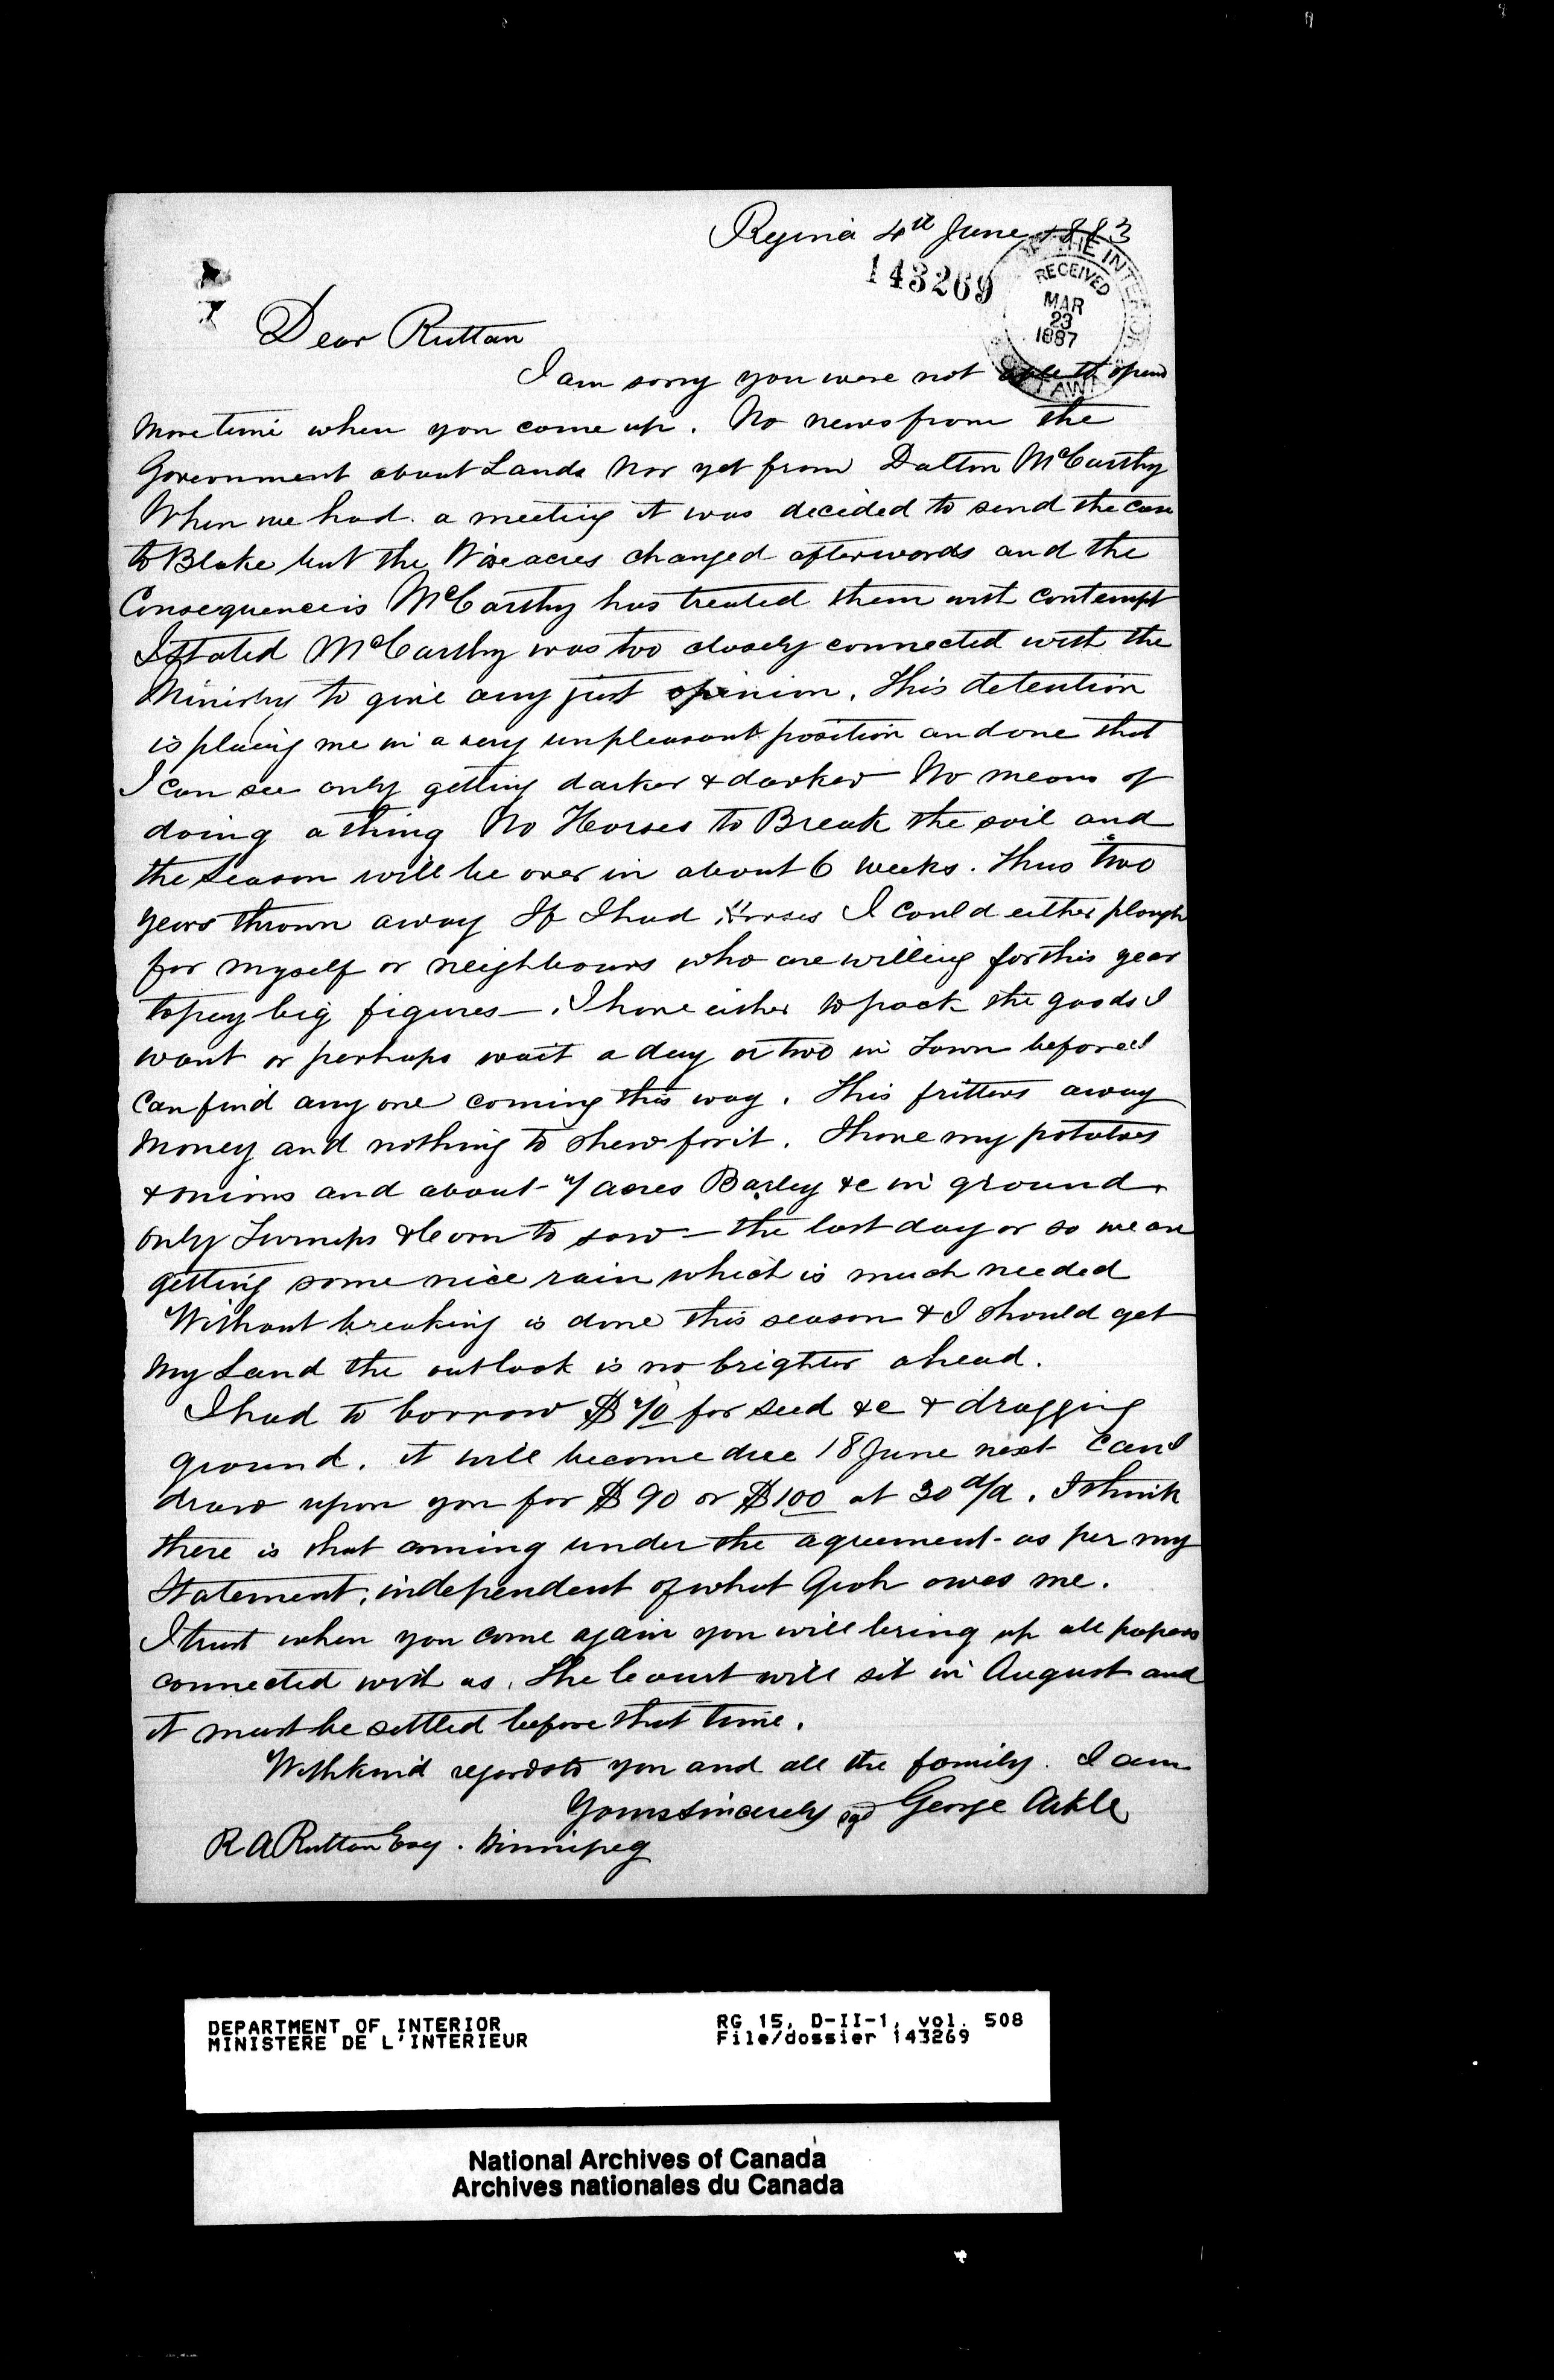 Regina 4th June 1883
143269
OF THE INTERIOR
RECEIVED
MAR
23
1887
OTTAWA
Dear Ruttan
I am sorry you were not able to spend
more time when you come up. No news from the
Government about Lands nor yet from Dalton McCarthy
When we had a meeting it was decided to send the case
to Blake but the Wiseacres changed afterwords and the
Consequence is McCarthy has treated them with contempt
I stated McCarthy was too closely connected with the
Ministry to give any just opinion. This detention
is placing me in a very unpleasant position and one that
I can see only getting darker & darker No means of
doing a thing No Horses to Break the soil and
the Season will be over in about 6 weeks. Thus two
years thrown away If I had Horses I could either plough
for myself or neighbours who are willing for this year
to pay big figures—. I have either to pack the goods I
want or perhaps wait a day or two in Town before I
can find any one coming this way. This fritters away
money and nothing to shew for it. I have my potatoes
& onions and about acres Barley &c in ground
only Turnips & Corn to sow — the last day or so we are
getting some nice rain which is much needed
Without breaking is done this season & I should get
my Land the outlook is no brighter ahead.
I had to borrow for seed &c & dragging
ground. it will become due 18 June next Can I
draw upon you for $90 or $100 at 30 d/d. I think
there is that coming under the agreement as per my
Statement, independent of what owes me.
I trust when you come again you will bring up all papers
connected with us. The Court will sit in August and
it must be settled before that time.
With kind regards to you and all the family. I am
Yours sincerely sgd George Arkle
R A Ruttan Esq. Winnipeg
DEPARTMENT OF INTERIOR RG 15, D-II-1, vol. 508
MINISTERE DE L'INTERIEUR File/dossier 143269
National Archives of Canada
Archives nationales du Canada